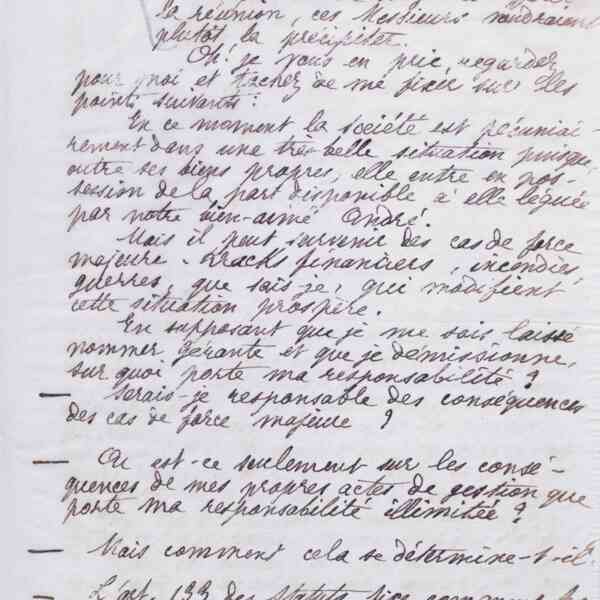 la réunion, ces Messieurs voudraient
plutôt la précipiter.
Oh! je vous en prie, regardez
pour moi et tachez de me fixer sur les
points suivants:
En ce moment la société est pécuniai-
rement dans une très-belle situation puisque,
outre ses biens propres, elle entre en pos-
session de la part disponible à elle léguée
par notre bien-aimé André.
Mais il peut survenir des cas de force
majeure - kracks financiers, incendies,
guerres, que sais-je, qui modifient
cette situation prospère.
En supposant que je me sois laissé
nommer gérante et que je démissionne,
sur quoi porte ma responsabilité ?
— Serais-je responsable des conséquences
des cas de force majeure ?
— Ou est-ce seulement sur les consé-
quences de mes propres actes de gestion que
porte ma responsabilité illimitée ?
— Mais comment cela se détermine-t-il
— L'art. 133 des statuts